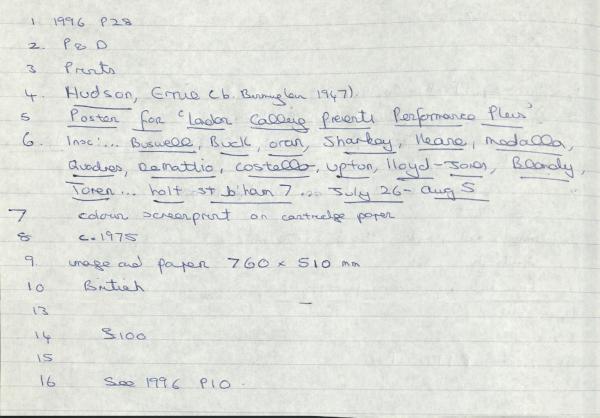 1. 1996 P28
2. P & D
3 Prints
4. Hudson, Ernie (b. Birmingham 1947).
5 Poster for 'Ikon Calling presents Performance Plus'
6. Insc: ... Buswell, Buck, Oran, Sharkey, Keane, Medalla,
Quadros, Demattio, Costello, Upton, Lloyd-Jones, Blandy,
Toren ... holt st b'ham 7 ... July 26 - Aug 5
7 colour screenprint on cartridge paper
8 c.1975
9. image and paper 760 x 510 mm
10 British
13
14 S100
15
16 See 1996 P10.